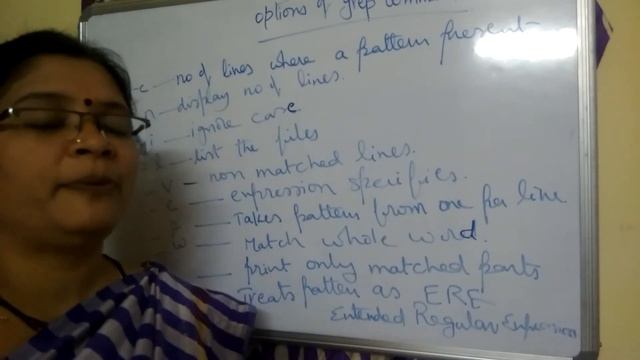 options of grep
-c — no of lines where a pattern present
n — display no of lines.
i — ignore case
list the files
v — non matched lines.
e — expression specifies.
Takes pattern from one per line
w — Match whole word.
— print only matched parts
Treats patten as ERE
Extended Regular Expression